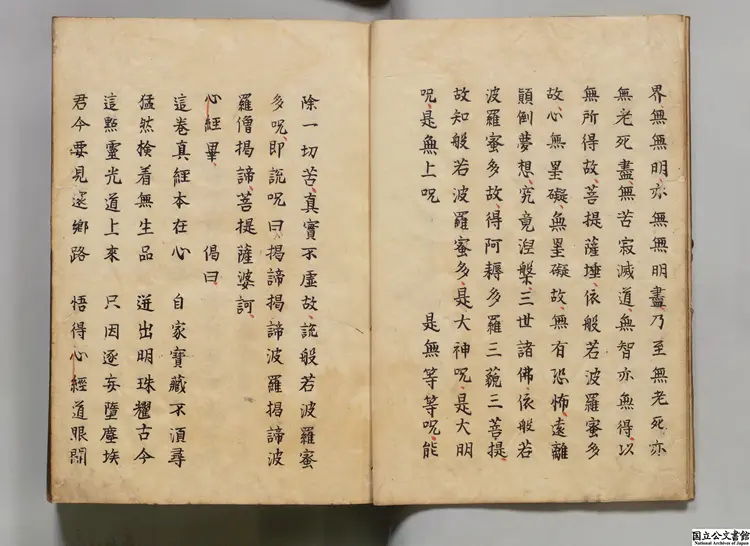 界無無明亦無無明盡乃至無老死亦
無老死盡無苦寂滅道無智亦無得以
無所得故菩提薩埵依般若波羅蜜多
故心無罣礙無罣礙故無有恐怖遠離
顛倒夢想究竟涅槃三世諸佛依般若
波羅蜜多故得阿耨多羅三藐三菩提
故知般若波羅蜜多是大神呪是大明
呪是無上呪 是無等等呪能
除一切苦真實不虛故說般若波羅蜜
多呪即說呪曰揭諦揭諦波羅揭諦波
羅僧揭諦菩提薩婆訶
心經畢 偈曰
這卷真經本在心 自家寶藏不須尋
猛然撿着無生品 迸出明珠耀古今
這點靈光道上來 只因逐妄墮塵埃
君今要見還鄉路 悟得心經道眼開
国立公文書館
National Archives of Japan